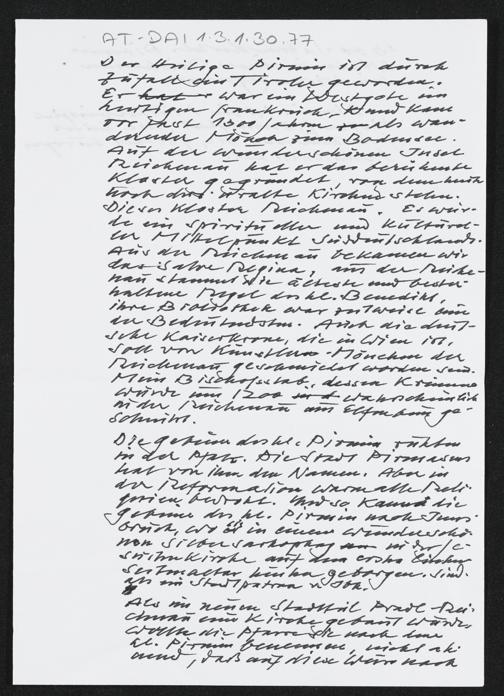 AT-DAI 1.3.1.30.77
Der Heilige Pirmin ist durch
Zufall ein Tiroler geworden.
Er hat war ein Westgote im
heutigen Frankreich, und kam
vor fast 1300 Jahren als wan-
dernder Mönch zum Bodensee.
Auf der wunderschönen Insel
Reichenau hat er das berühmte
Kloster gegründet, von dem heute
noch drei uralte Kirchen stehen.
Dieses Kloster Reichenau. Es wur-
de ein spiritueller und kulturel-
ler Mittelpunkt Süddeutschlands.
Aus der Reichenau bekamen wir
das Salve Regina, aus der Reiche-
nau stammt die älteste und bester-
haltene Regel des hl. Benedikt,
ihre Bibliothek war zeitweise eine
der bedeutendsten. Auch die deut-
sche Kaiserkrone, die in Wien ist,
soll von Künstler-Mönchen der
Reichenau geschmiedet worden sein.
Mein Bischofsstab, dessen Krümme
wurde um 1200 wahrscheinlich
in der Reichenau aus Elfenbein ge-
schnitzt.
Die Gebeine des hl. Pirmin ruhten
in der Pfalz. Die Stadt Pirmasens
hat von ihm den Namen. Aber in
der Reformation waren alle Reli-
quien bedroht. Und so kamen die
Gebeine des hl. Pirmin nach Inns-
bruck, wo er in einem wunderschö-
nen Silbersarkophag in der Je-
suitenkirche auf dem ersten linken
Seitenaltar geborgen sind.
als ein Stadtpatron
Als im neuen Stadtteil Pradl-Rei-
chenau eine Kirche gebaut wurde,
wollte die Pfarre sie nach dem
hl. Pirmin benennen, nicht ah-
nend, daß auf diese Weise nach